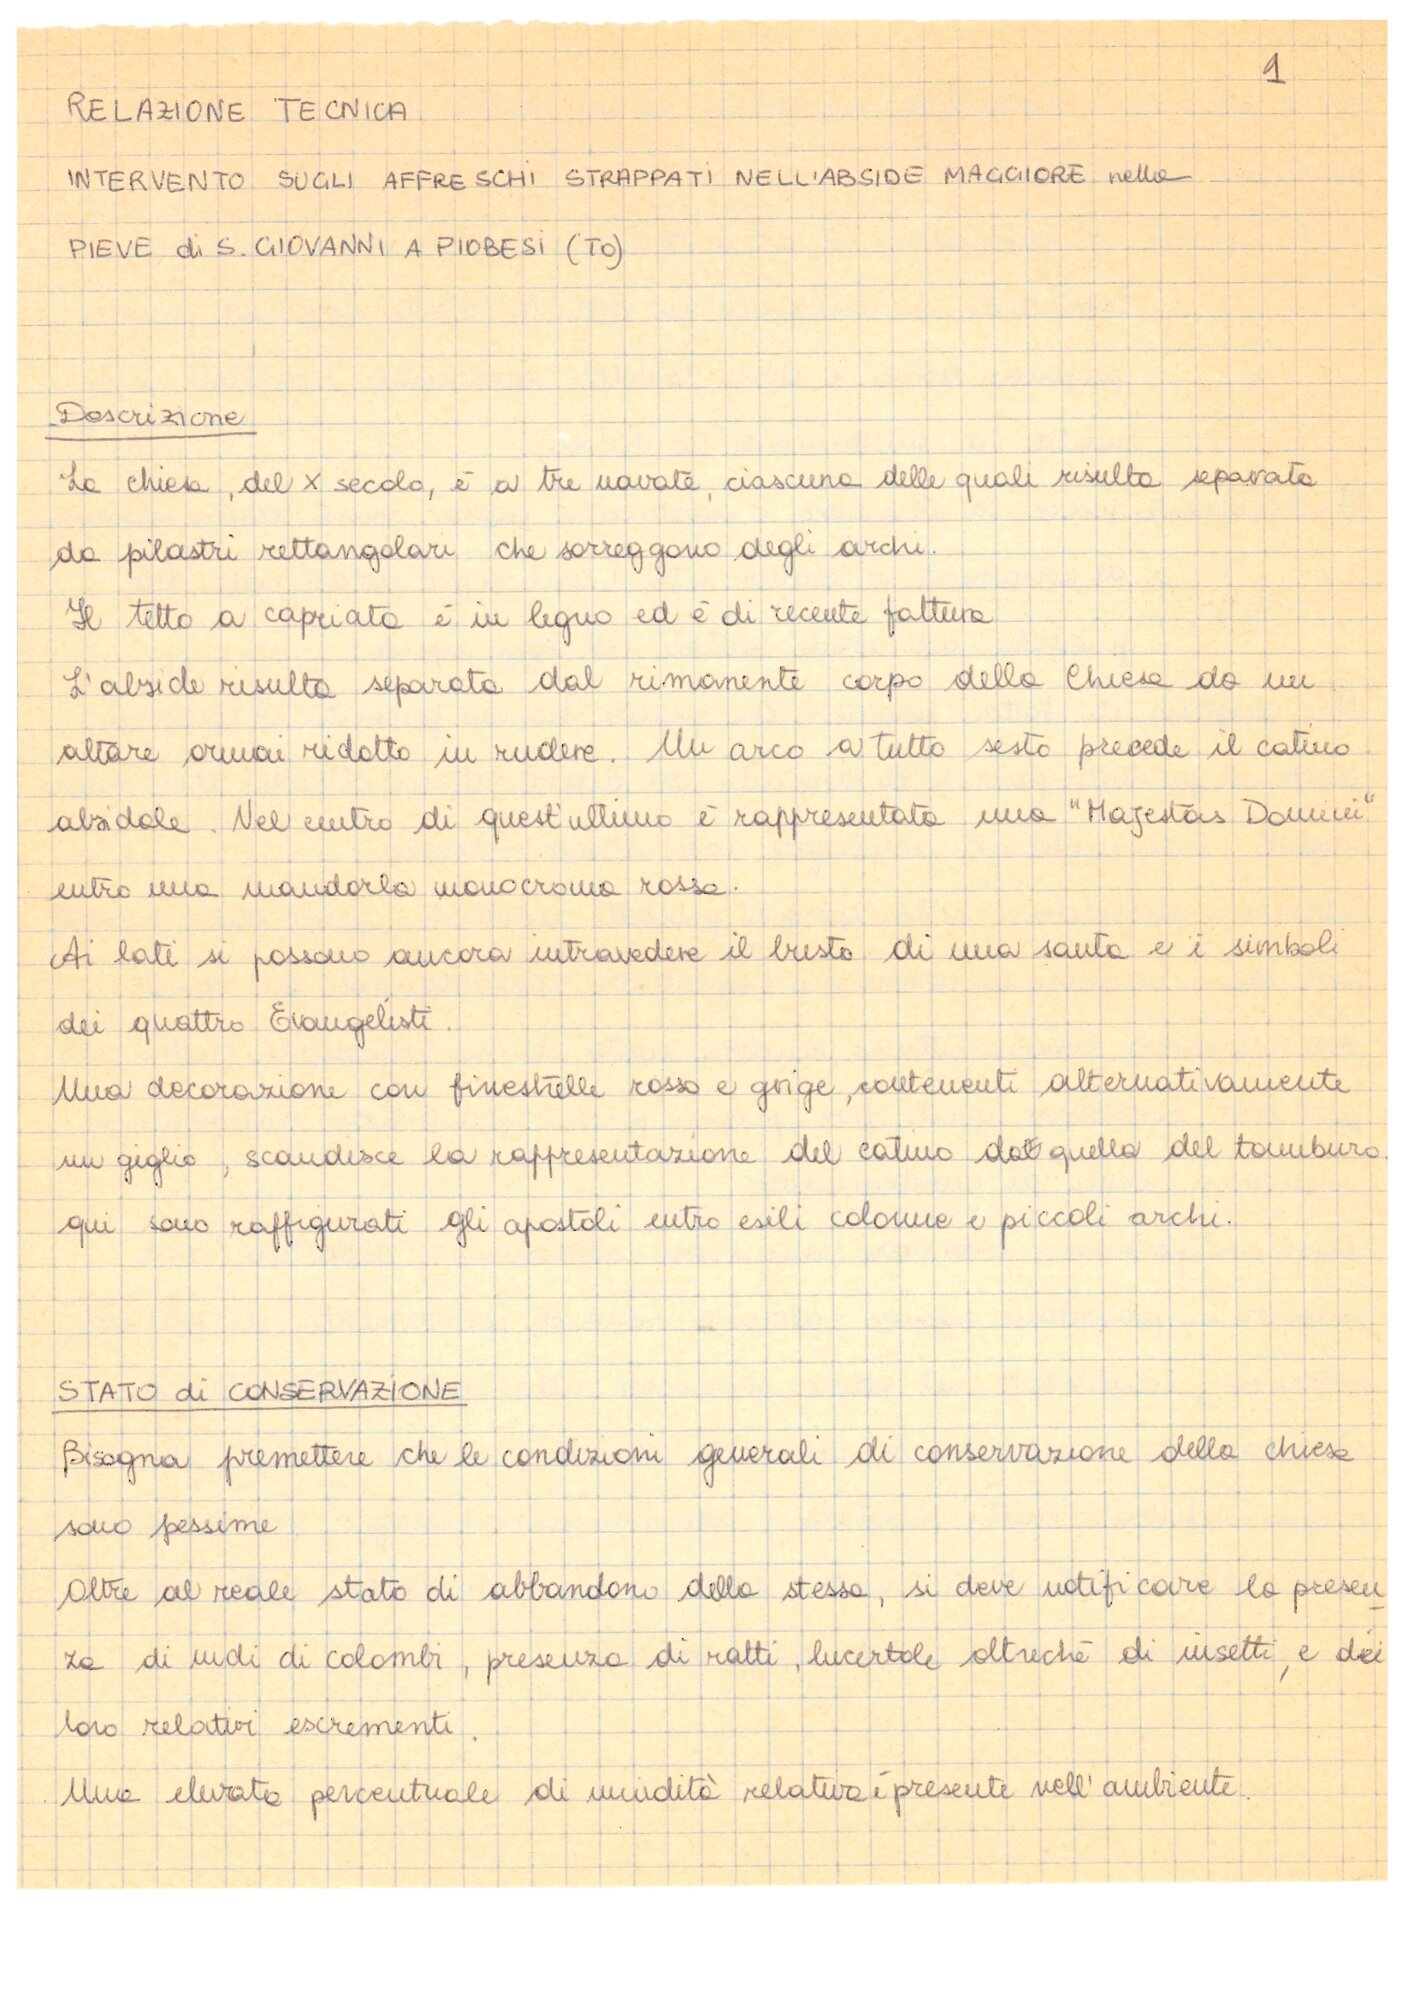 1
RELAZIONE TECNICA
INTERVENTO SUGLI AFFRESCHI STRAPPATI NELL'ABSIDE MAGGIORE nella
PIEVE di S. GIOVANNI A PIOBESI (TO)
Descrizione
La chiesa, del X secolo, è a tre navate, ciascuna delle quali risulta separata
da pilastri rettangolari che sorreggono degli archi.
Il tetto a capriata è in legno ed è di recente fattura
L'abside risulta separata dal rimanente corpo della Chiesa da un
altare ormai ridotto in rudere. Un arco a tutto sesto precede il catino
absidale. Nel centro di quest'ultimo è rappresentata una "Majestas Domini"
entro una mandorla monocroma rossa.
Ai lati si possono ancora intravedere il busto di una santa e i simboli
dei quattro Evangelisti.
Una decorazione con finestrelle rosso e grige, contenenti alternativamente
un giglio, scandisce la rappresentazione del catino da quella del tamburo.
qui sono raffigurati gli apostoli entro esili colonne e piccoli archi.
STATO di CONSERVAZIONE
Bisogna premettere che le condizioni generali di conservazione della chiesa
sono pessime
Oltre al reale stato di abbandono della stessa, si deve notificare la presen_
za di nidi di colombi, presenza di ratti, lucertole oltreché di insetti, e dei
loro relativi escrementi.
Una elevata percentuale di umidità relativa è presente nell'ambiente.